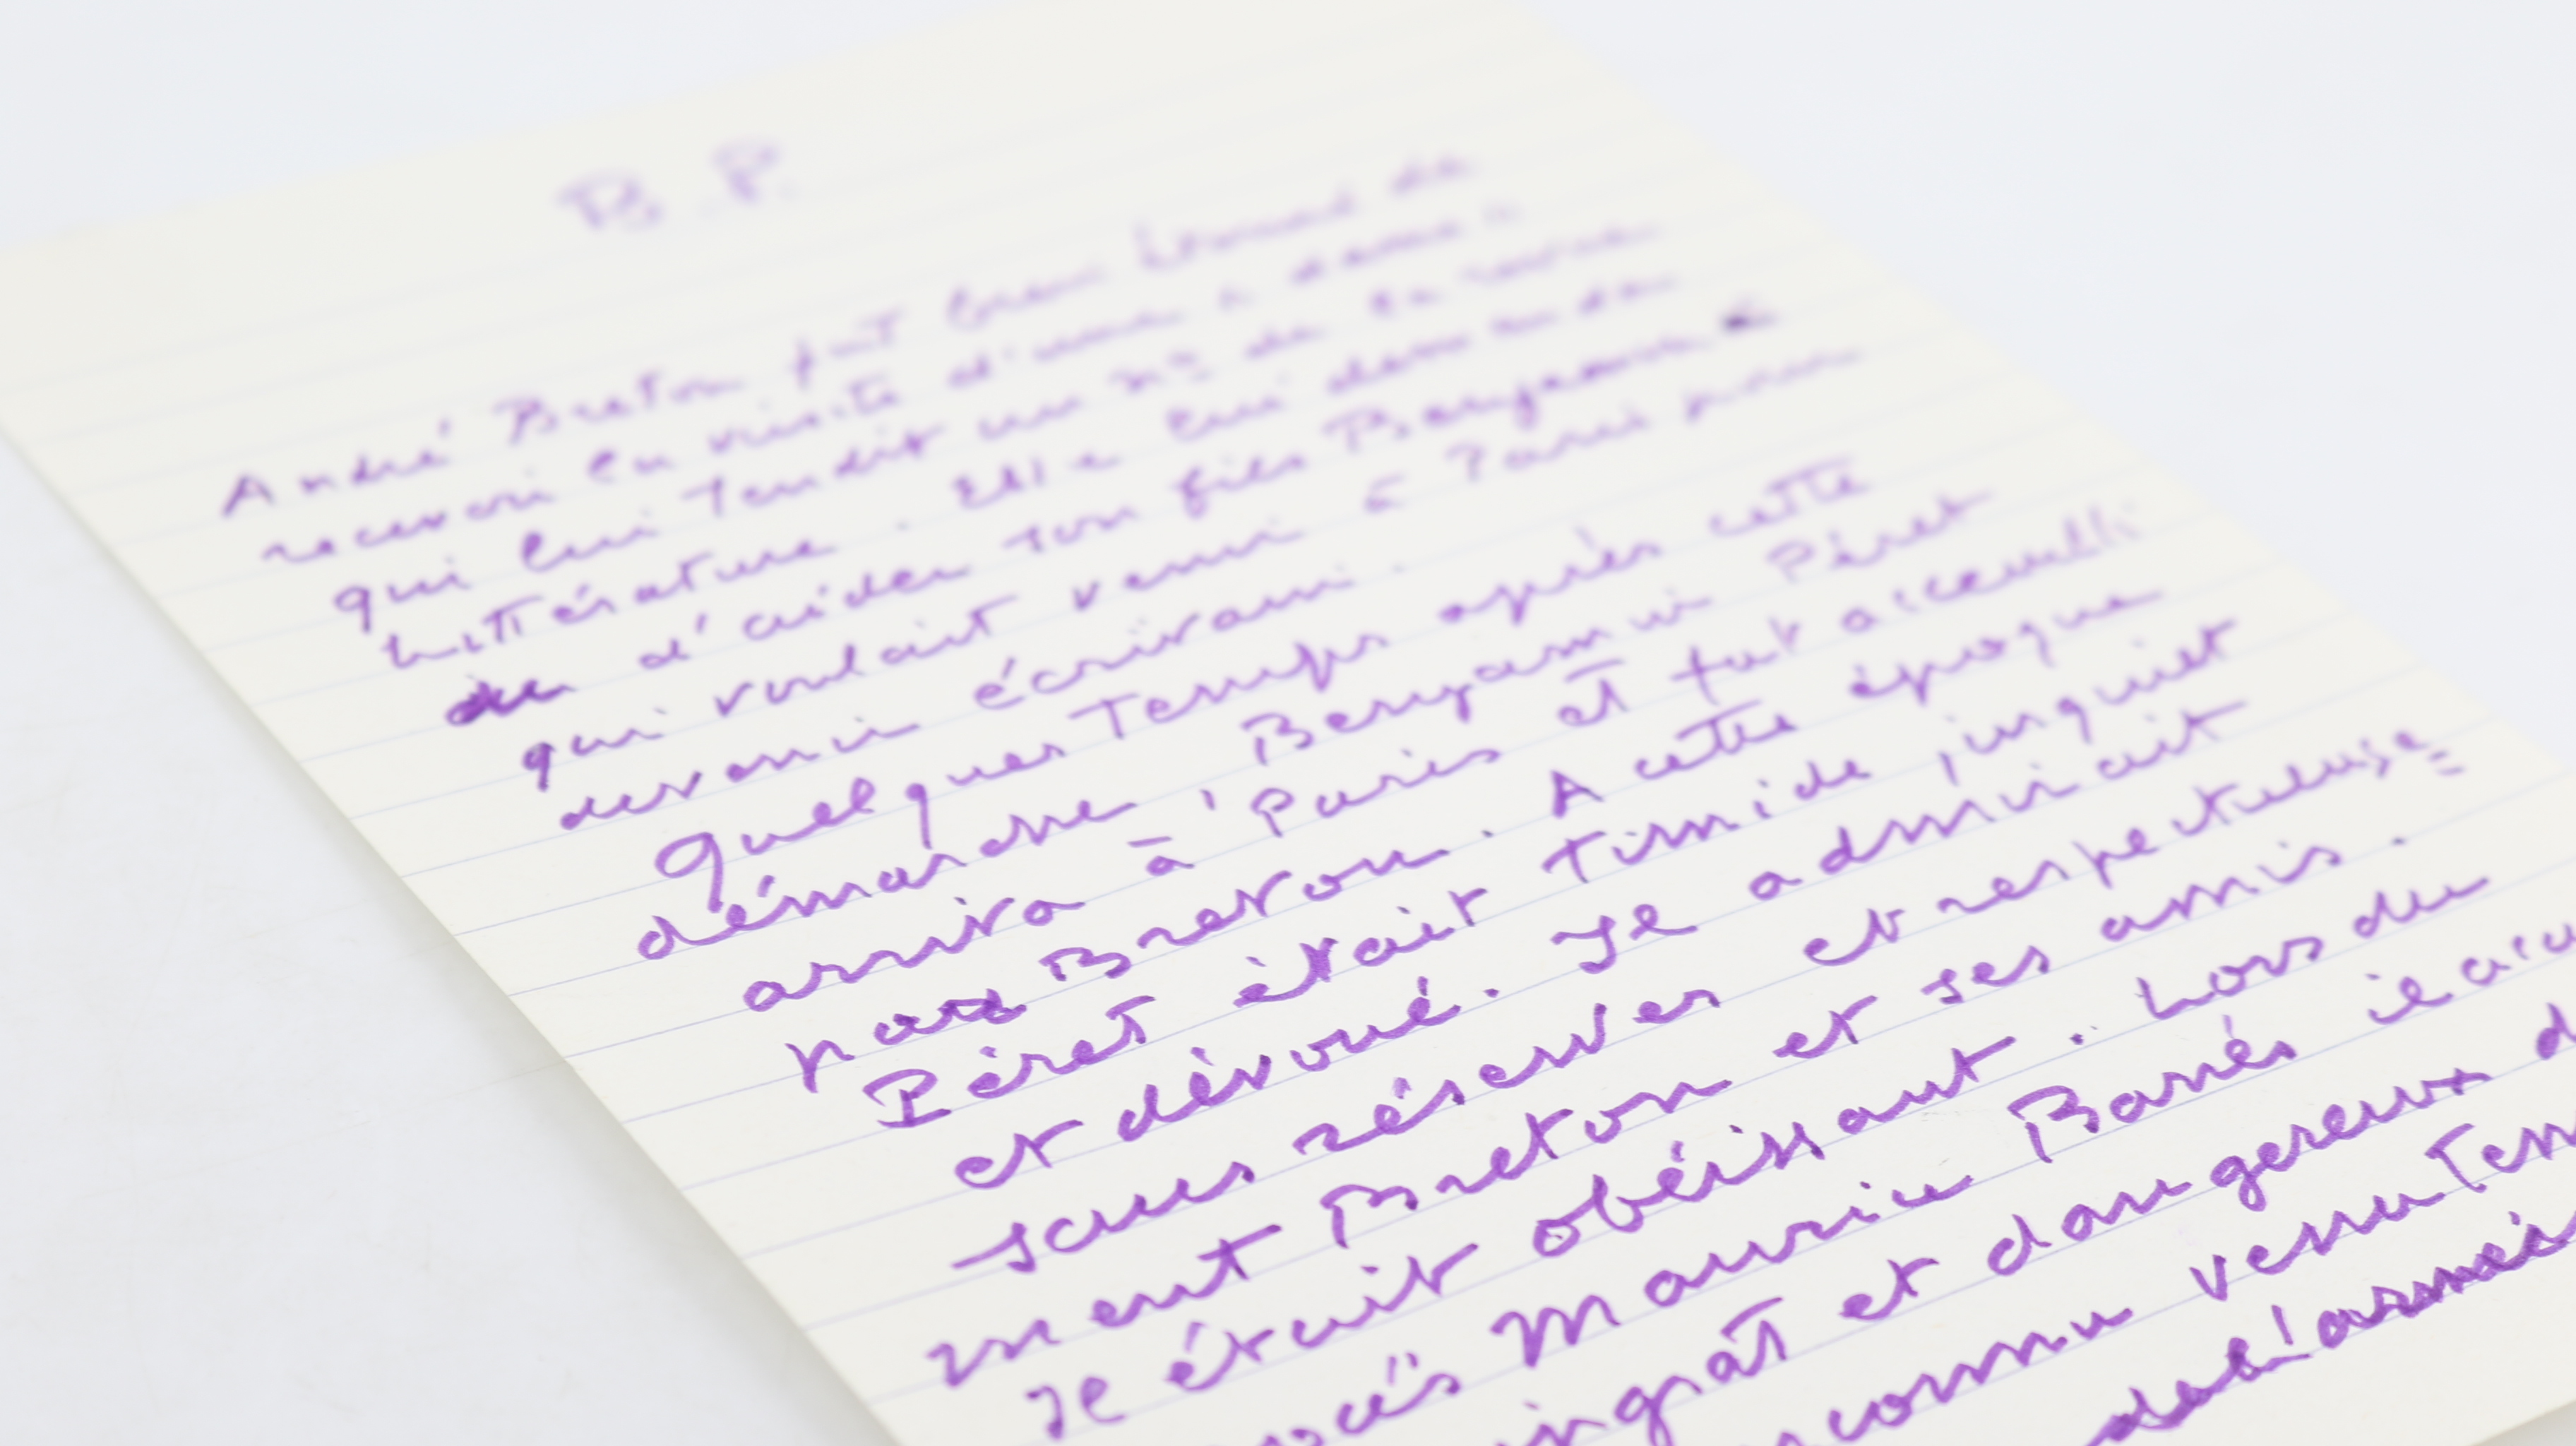 B. P.
André Breton fut bien étonné de
recevoir en visite d'une dame
qui lui tendit un n° de la revue
Littérature. Elle lui demanda
de d'aider son fils Benjamin
qui voulait venir à Paris pour
devenir écrivain.
Quelques temps après cette
démarche Benjamin Péret
arriva à Paris et fut accueilli
par Breton. A cette époque
Péret était timide, inquiet
et dévoué. Je admirait
sans réserves et respectueuse=
ment Breton et ses amis.
Je était obéissant. Lors du
Maurice Barrés il
ingrat et dangereux
connu venu
de l'armée